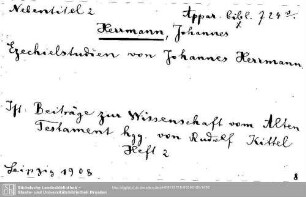 Nebentitel 2
Appar. bibl. 724ᵈ.
Herrmann, Johannes
Ezechielstudien von Johannes Herrmann
Ist: Beiträge zur Wissenschaft vom Alten
Testament hgg. von Rudolf Kittel
Heft 2
Leipzig 1908
8
Sächsische Landesbibliothek -
Staats- und Universitätsbibliothek Dresden